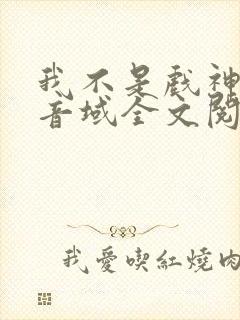 我不是戲神
音域全文閱
我愛喫紅燒肉